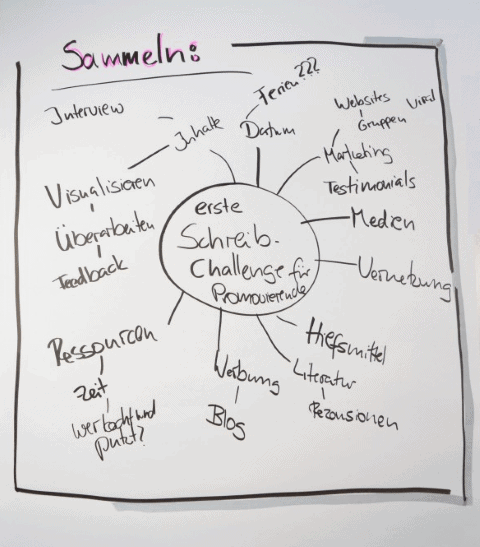 Sammeln:
Ferien???
Websites
Viral
Gruppen
Interview
Inhalte
Datum
Marketing
Testimonials
Visualisieren
Überarbeiten
Feedback
erste
Schreib-
Challenge für
Promovierende
Medien
Vernetzung
Ressourcen
Zeit
Wer kocht und
putzt?
Werbung
Blog
Hilfsmittel
Literatur
Rezensionen